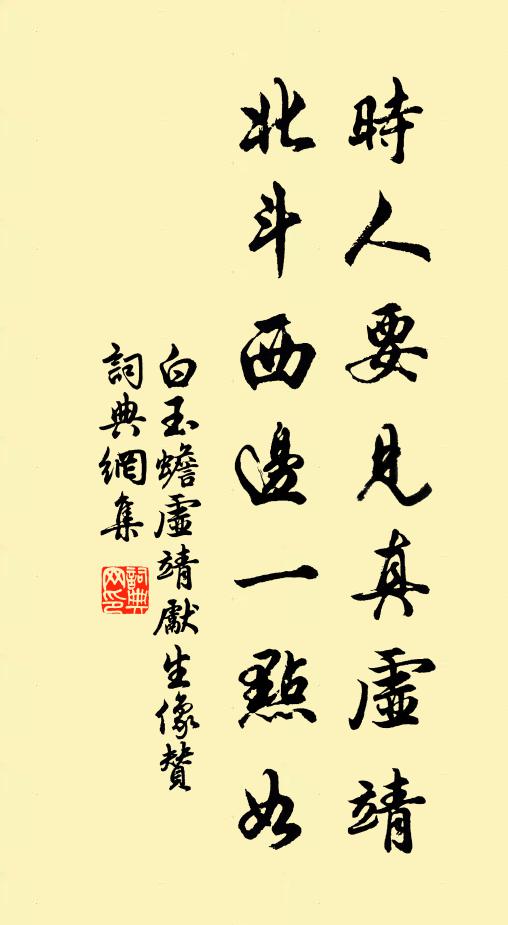 時人要見真虛靖
北斗西邊一點如
白玉蟾虛靖獻生像贊
詞典網集
詞典網印